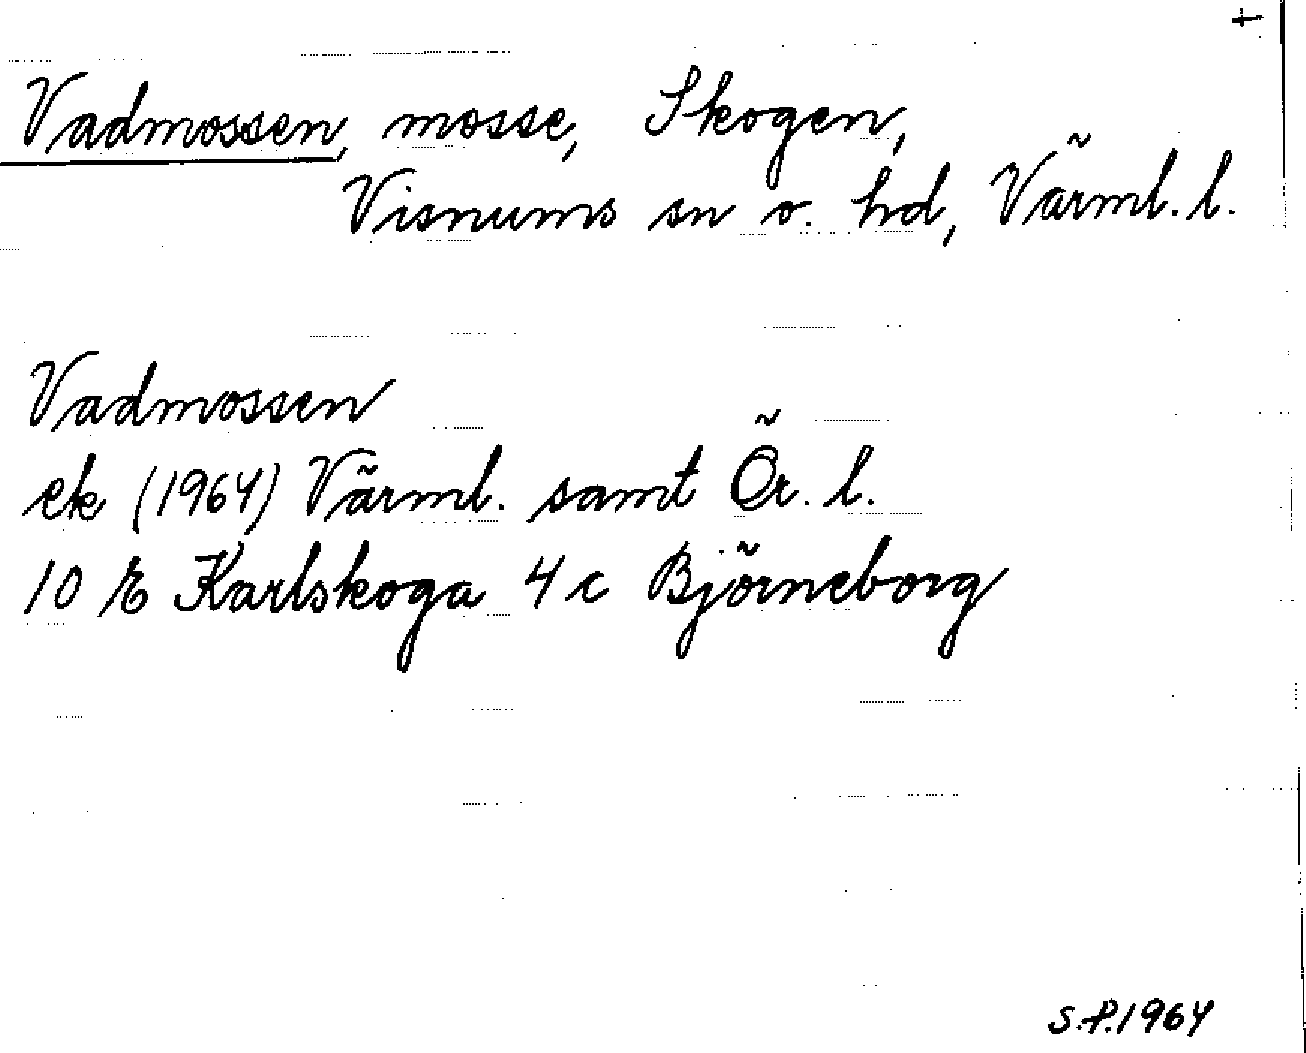 Vadmossen, mosse, Skogen,
Visnums sn o. hd, Värml. l.
Vadmossen
ek (1964) Värml. samt Ör. l.
10 E Karlskoga 4 c Björneborg
S.P. 1964